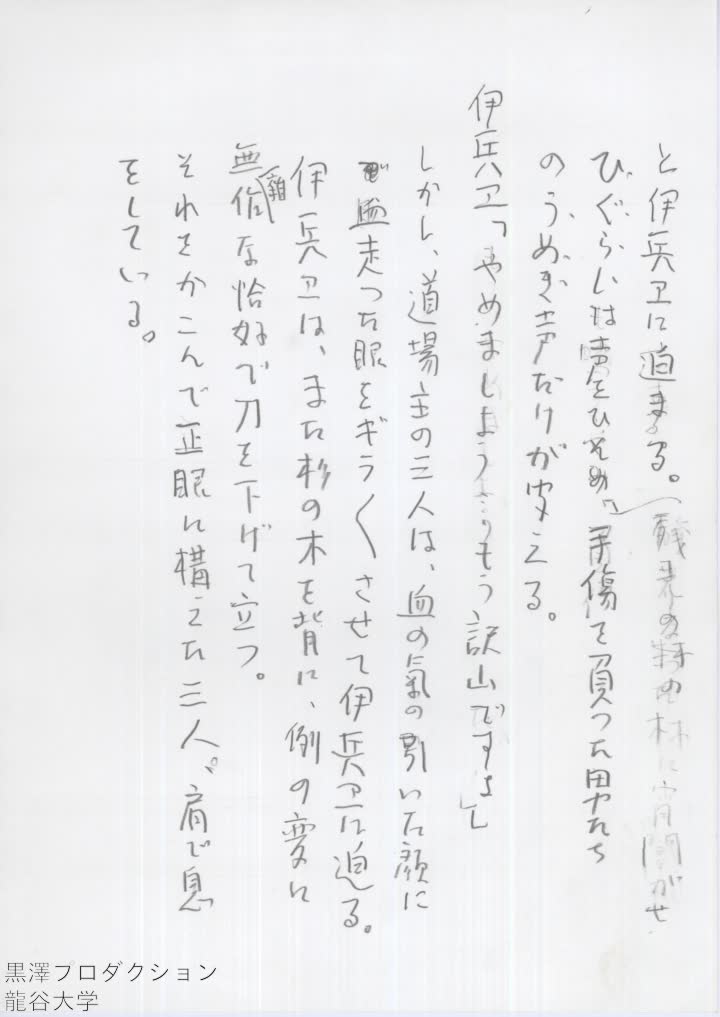 と伊兵卫に迫まる。
ひぐらしは声をひそめ、手傷を負つた男たち
のうめき声だけが聞える。
伊兵卫「やめましよう もう沢山ですよ」
しかし、道場主の三人は、血の氣の引いた顔に
血走つた眼をギラ〱させて伊兵卫に迫る。
伊兵卫は、また杉の木を背に、例の変に
無雑な恰好で刀を下げて立つ。
それをかこんで正眼に構えた三人。肩で息
をしている。
黒澤プロダクション
龍谷大学